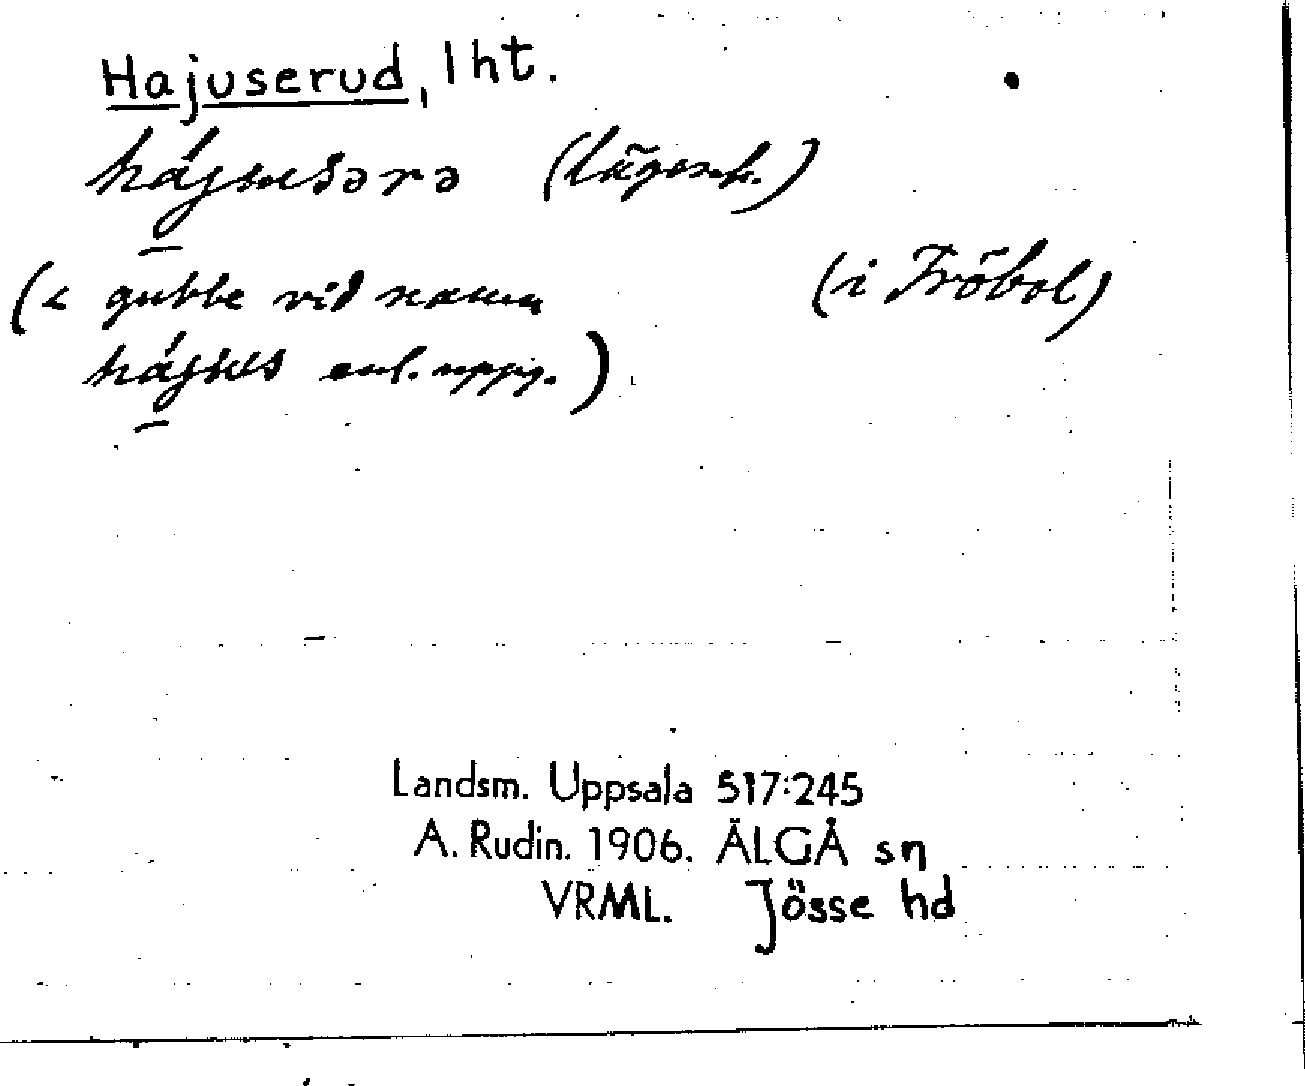 Hajuserud, lht.
hájusərə (lägenh.)
(< gubbe vid namn (i Fröbol)
hájus enl. uppg.)
Landsm. Uppsala 517:245
A. Rudin. 1906. ÄLGÅ sn
VRML. Jösse hd